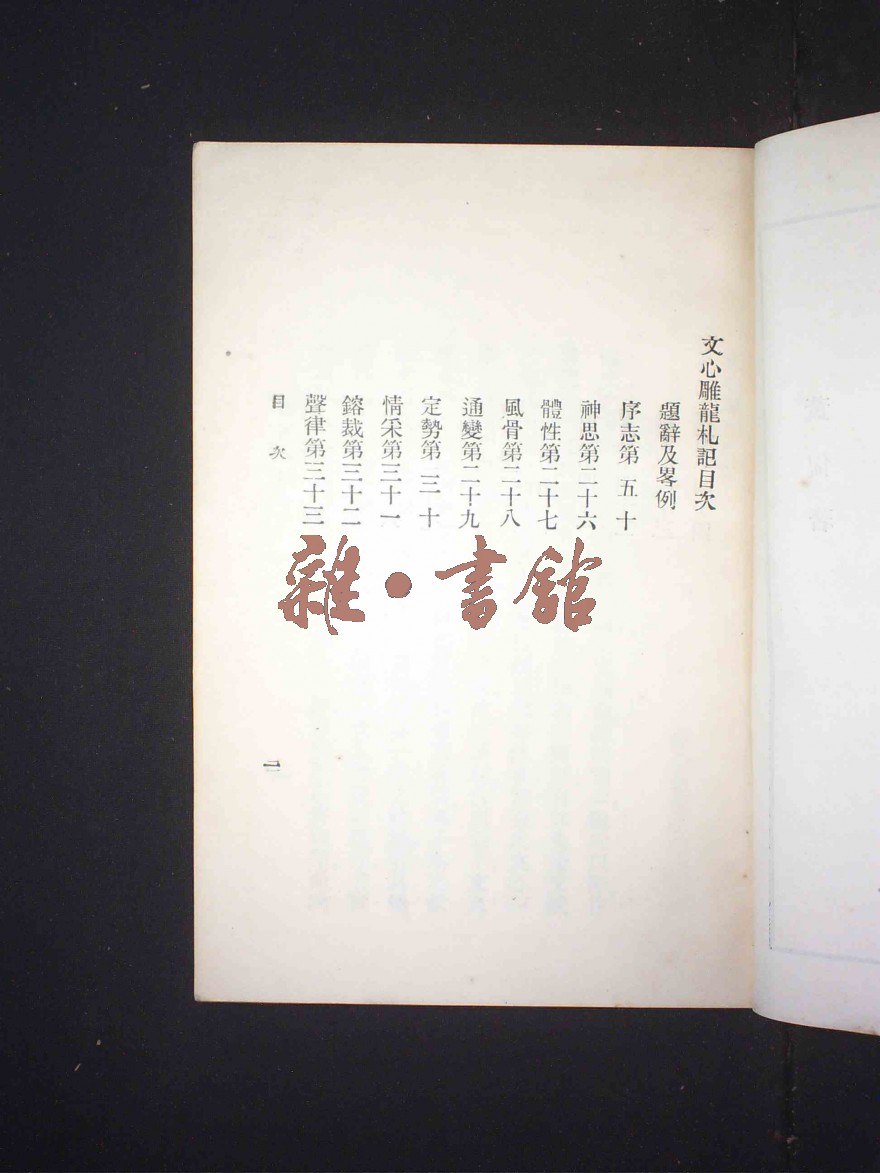 文心雕龍札記目次
題辭及畧例
序志第五十
神思第二十六
體性第二十七
風骨第二十八
通變第二十九
定勢第三十
情采第三十一
鎔裁第三十二
聲律第三十三
目次
雜·書館